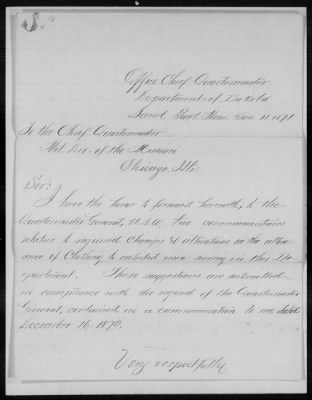 Office Chief Quartermaster
Department of Dakota
Saint Paul, Minn. Jan. 11 1871
To the Chief Quartermaster
Mil. Div. of the Missouri
Chicago, Ills.
Sir:
I have the honor to forward herewith, to the
Quartermaster General, U.S.A. two communications
relative to required changes & alterations in the allow-
ance of Clothing to enlisted men serving in this De-
partment. These suggestions are submitted
in compliance with the request of the Quartermaster
General, contained in a communication to me dated
December 16, 1870.
Very respectfully